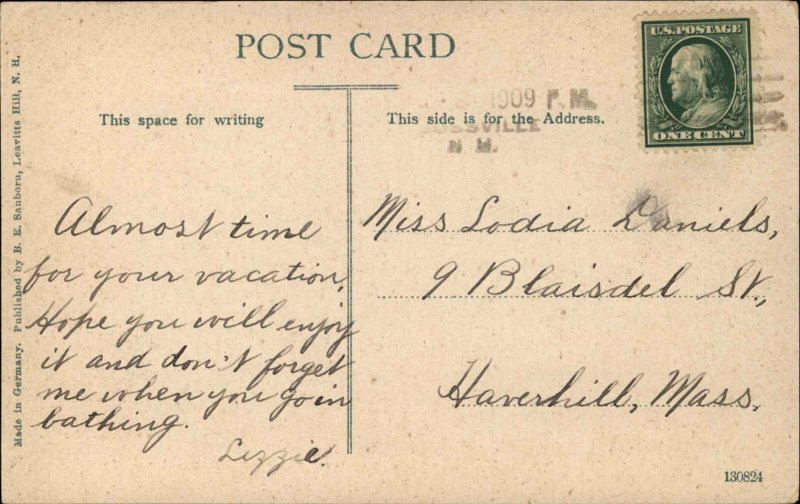 POST CARD
U.S. POSTAGE
ONE CENT
1909 P.M.
SSVILLE
N. H.
This space for writing
This side is for the Address.
Almost time
for your vacation,
Hope you will enjoy
it and don't forget
me when you go in
bathing.
Lizzie.
Miss Lodia Daniels,
9 Blaisdel St.,
Haverhill, Mass.
Made in Germany. Published by B. E. Sanborn, Leavitts Hill, N. H.
130824